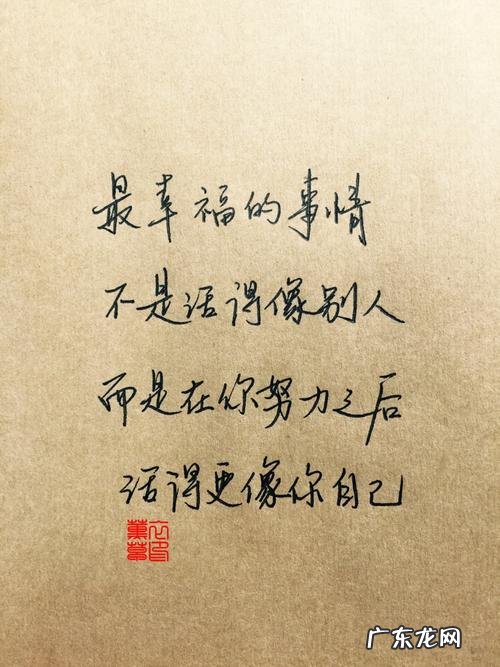 最幸福的事情
不是活得像别人
而是在你努力之后
活得更像你自己
广东龙网